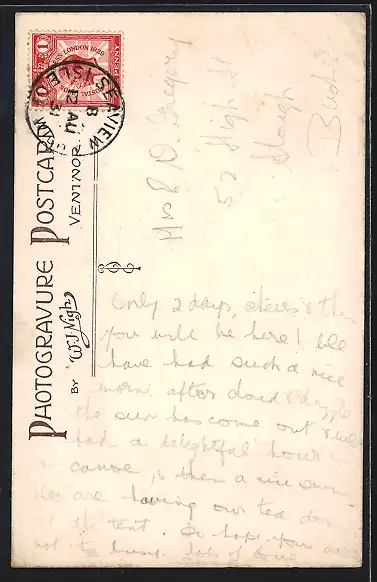 PHOTOGRAVURE POSTCARD
BY W.J. Nigh VENTNOR.
LONDON 1929
SEAVIEW
ISLE O W
8
12 AU
Mrs D. Gregory
52 High St
Slough
Bucks
Only 2 days, & then
you will be here! We
have had such a nice
morn. after cloud & drizzle
the sun has come out & we
had a delightful hour in
a canoe, & then a nice swim
We are having our tea down
at the tent. So hope you are
not too busy. Lots of love